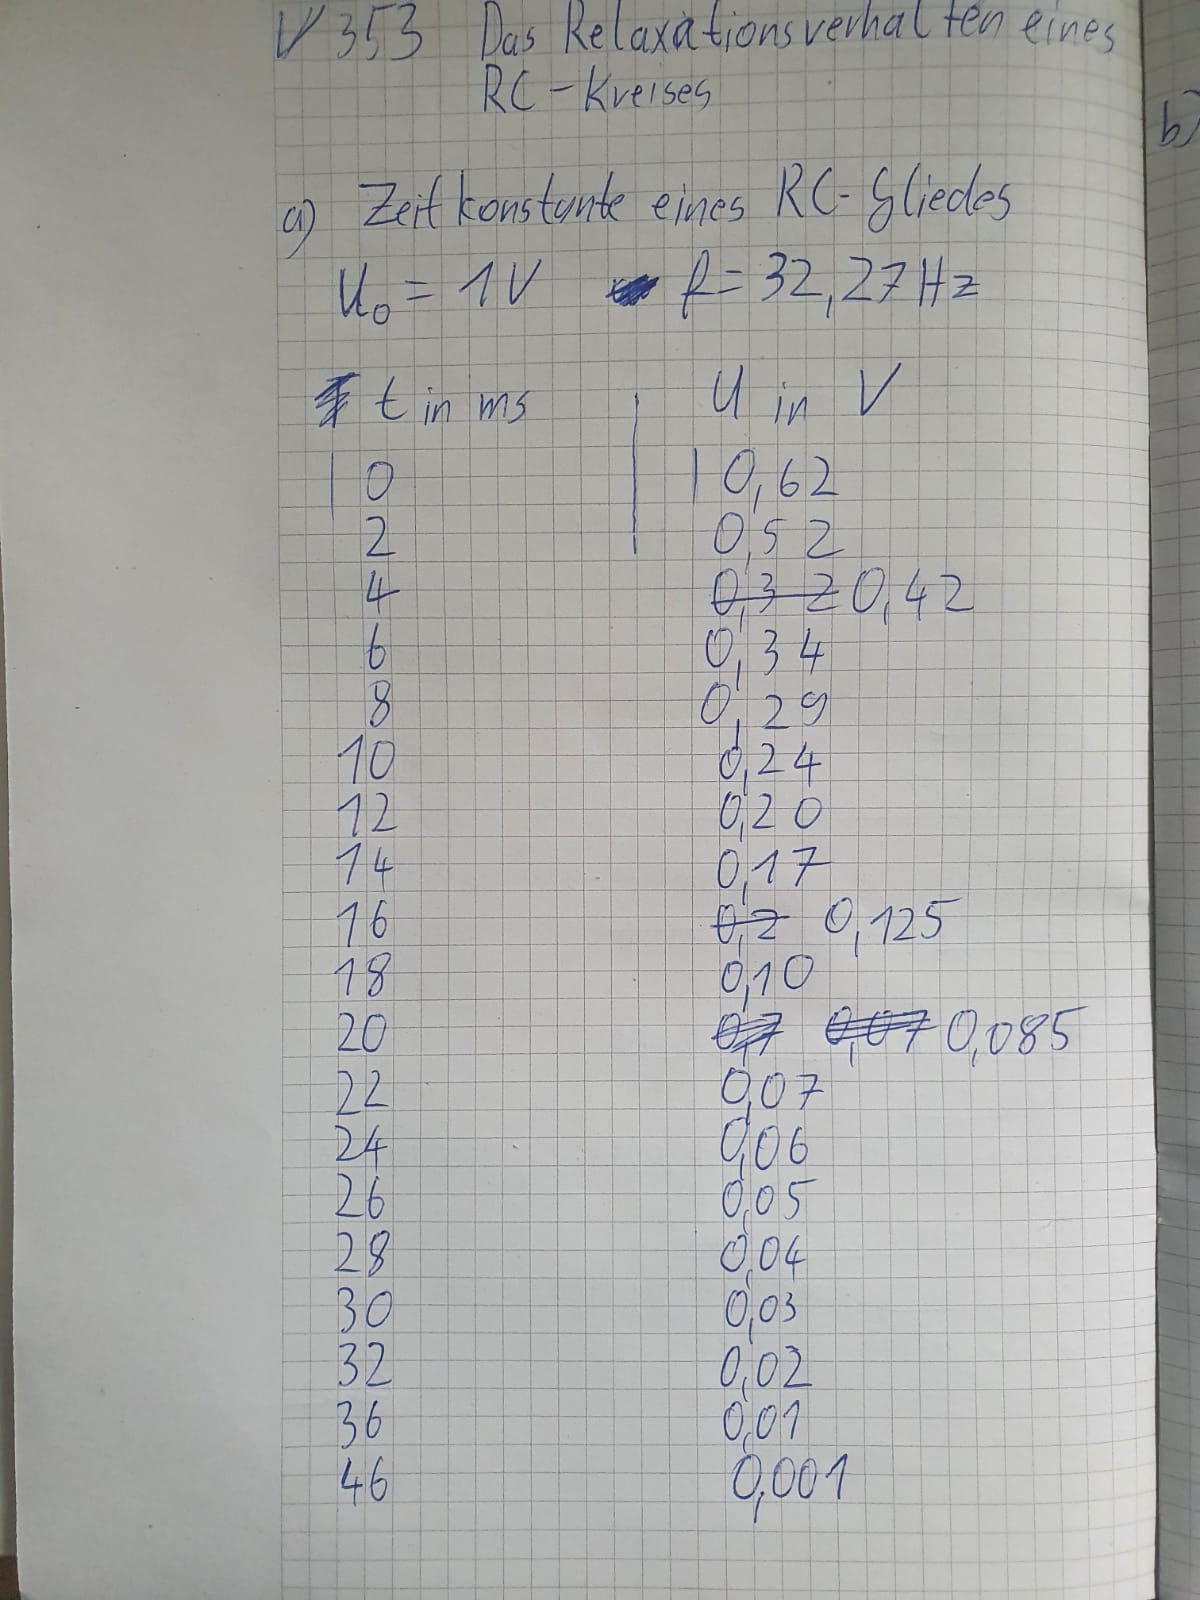 V353 Das Relaxationsverhalten eines
RC-Kreises
b)
a) Zeitkonstante eines RC-Gliedes
U₀ = 1V f = 32,27Hz
t in ms | U in V
0 | 0,62
2 | 0,52
4 0,32 0,42
6 0,34
8 0,29
10 0,24
12 0,20
14 0,17
16 0,2 0,125
18 0,10
20 0,7 0,07 0,085
22 0,07
24 0,06
26 0,05
28 0,04
30 0,03
32 0,02
36 0,01
46 0,001